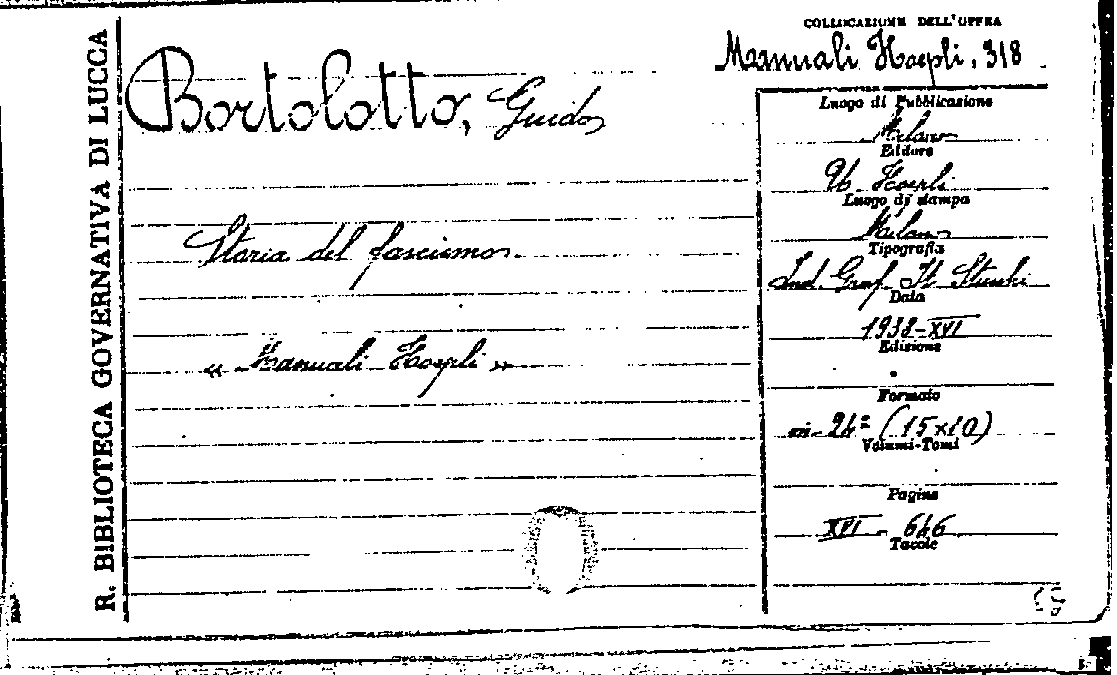 R. BIBLIOTECA GOVERNATIVA DI LUCCA
COLLOCAZIONE DELL'OPERA
Manuali Hoepli, 318
Bortolotto, Guido
Storia del fascismo.
« Manuali Hoepli »
Luogo di Pubblicazione
Milano
Editore
U. Hoepli
Luogo di stampa
Milano
Tipografia
Ind. Graf. It. Stucchi
Data
1938-XVI
Edizione
Formato
in-24º (15x10)
Volumi-Tomi
Pagine
XVI - 646
Tavole